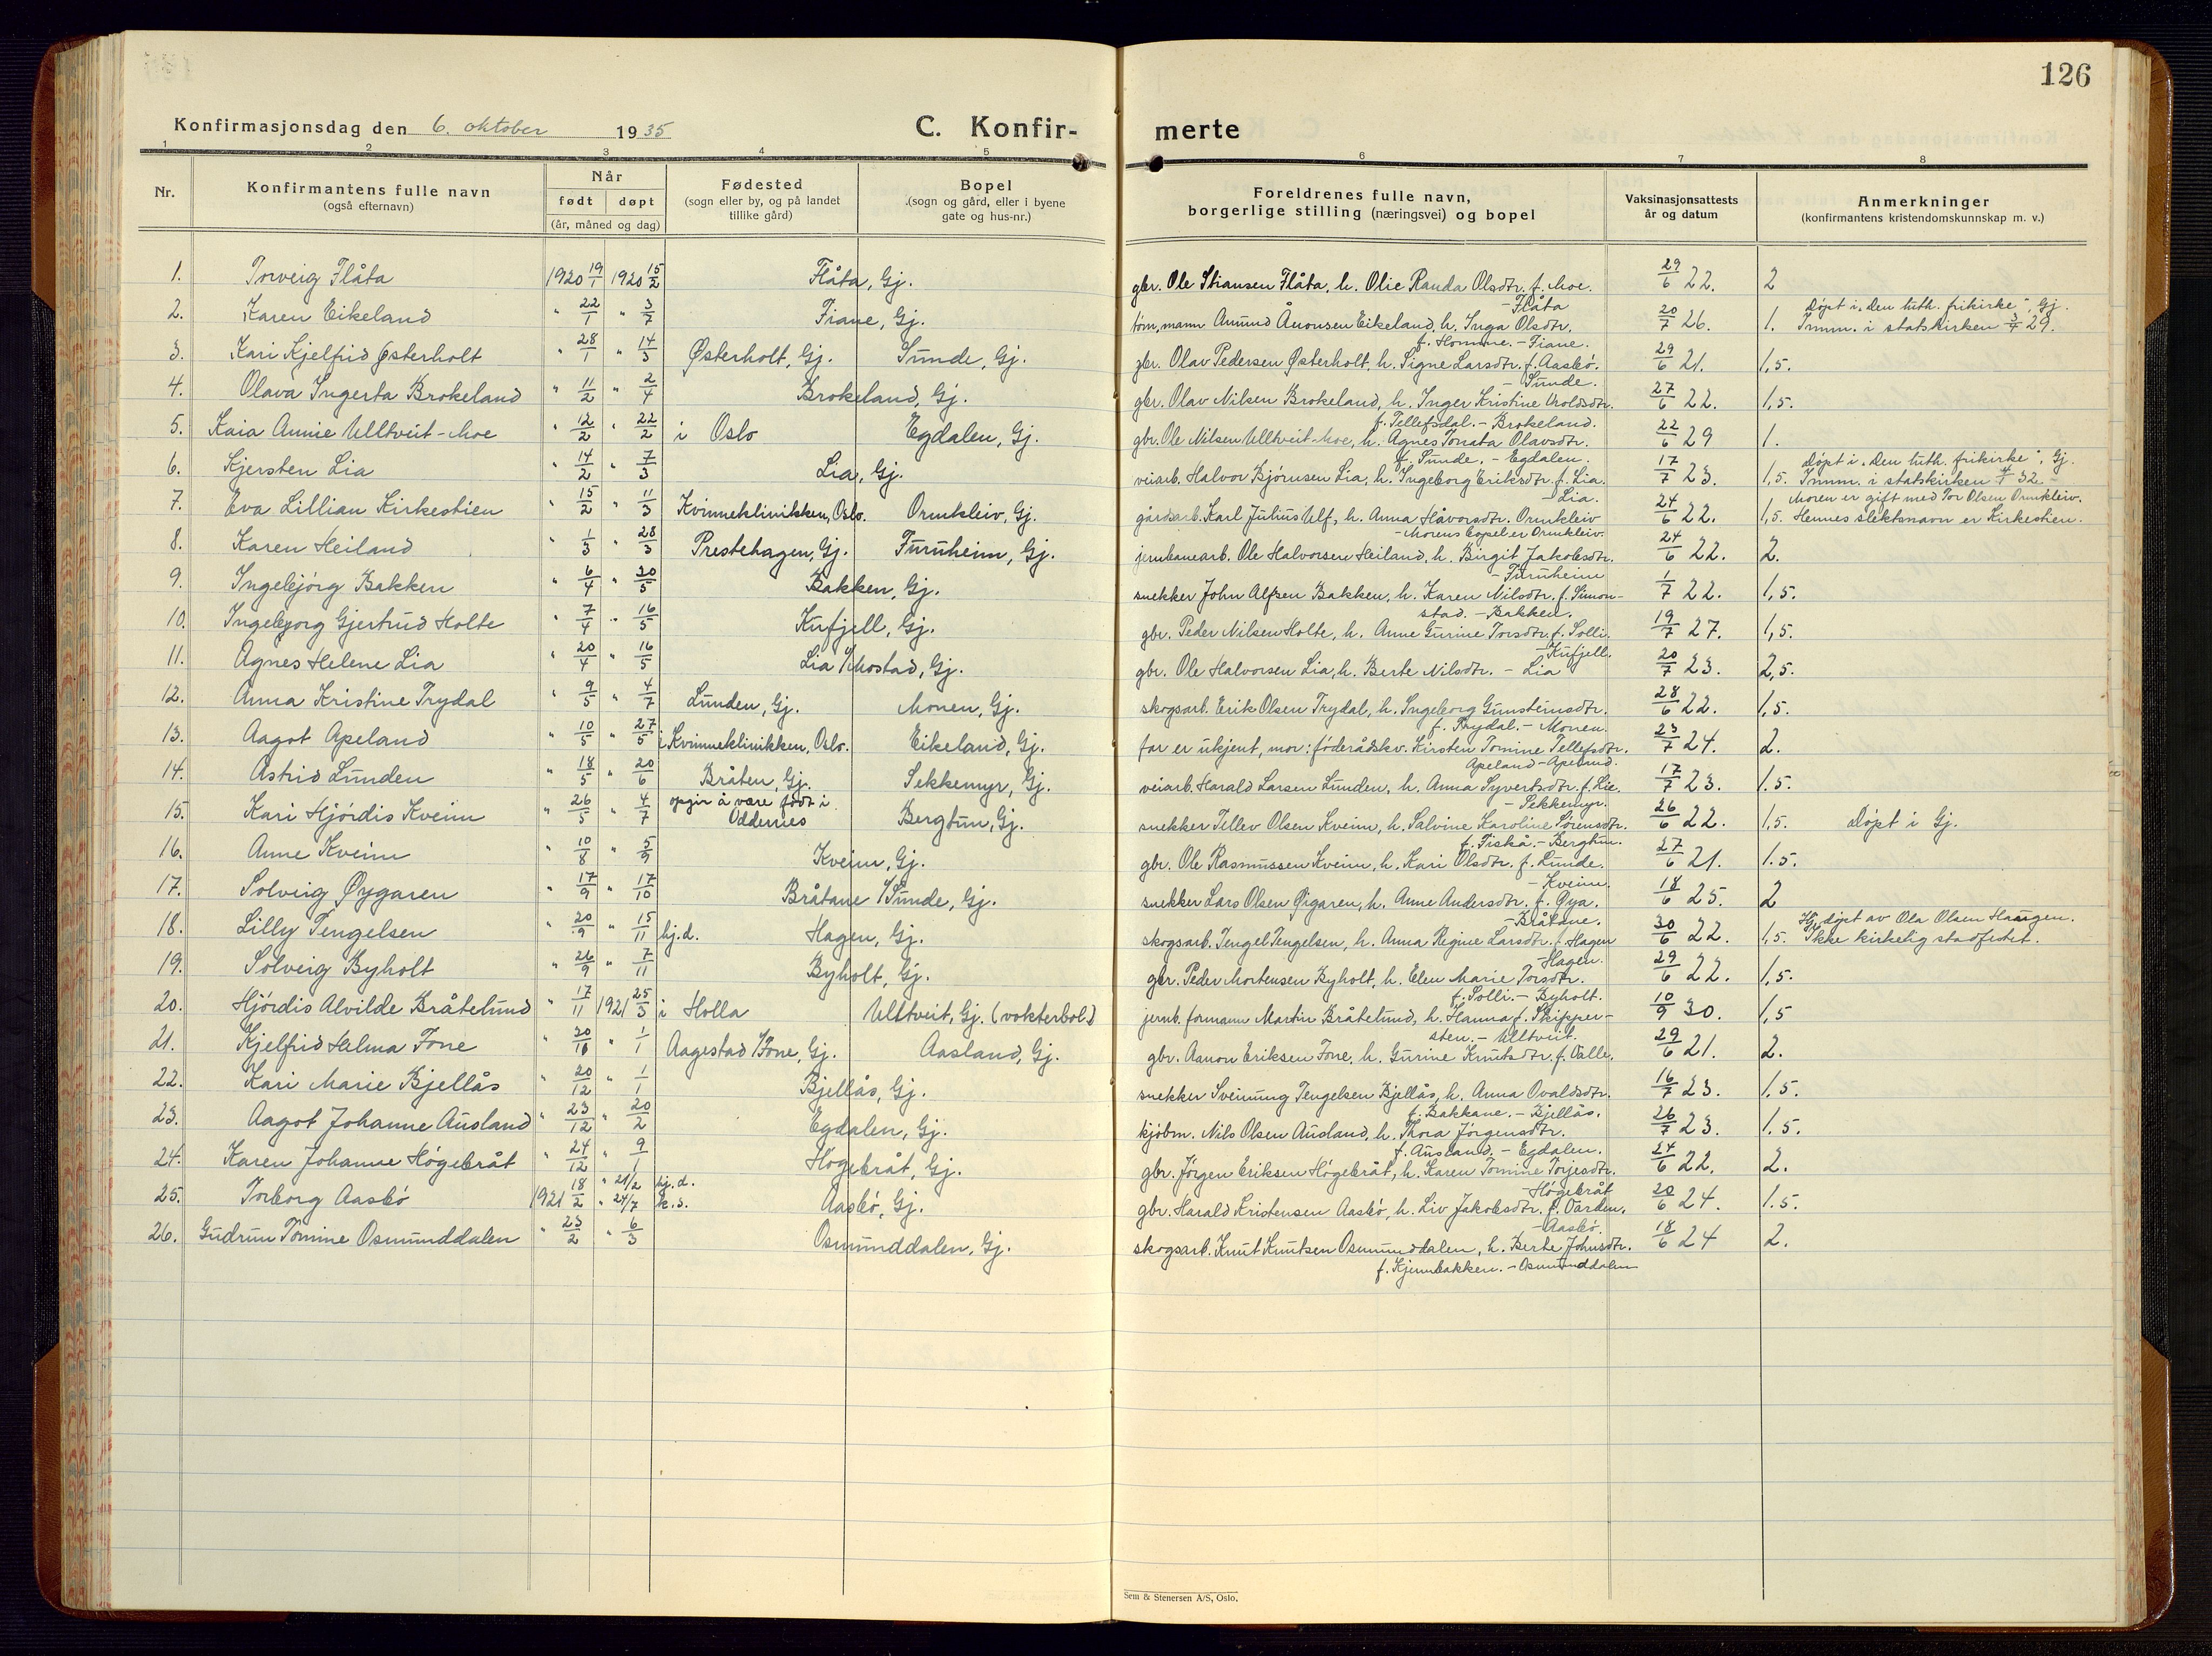 126
Konfirmasjonsdag den 6. oktober 1935 C. Konfir- merte
1 2 3 4 5 6 7 8
Nr. Konfirmantens fulle navn (også efternavn) Når født døpt (år, måned og dag) Fødested (sogn eller by, og på landet tillike gård) Bopel (sogn og gård, eller i byene gate og hus-nr.) Foreldrenes fulle navn, borgerlige stilling (næringsvei) og bopel Vaksinasjonsattests år og datum Anmerkninger (konfirmantens kristendomskunnskap m. v.)
1. Torveig Flåta 1920 19/1 1920 15/2 Flåta, Gj. gbr. Ole Stiansen Flåta, h. Olie Randa Olsdtr. f. Moe. - Flåta 29/6 22. 2
2. Karen Eikeland " 22/1 " 3/7 Fiane, Gj. töm,mann Amund Åuonsen Eikeland, h. Inga Olsdtr. f. Homme. - Fiane. 20/7 26. 1. Døpt i „Den luth. frikirke", Gj. Innm. i statskirken 3/4 29.
3. Kari Kjelfrid Østerholt " 28/1 " 14/3 Østerholt, Gj. Sunde, Gj. gbr. Olav Pedersen Østerholt, h. Signe Larsdtr. f. Aasbö. - Sunde. 29/6 21. 1,5.
4. Olava Ingerta Brokeland " 11/2 " 2/4 Brokeland, Gj. gbr. Olav Nilsen Brokeland, h. Inger Kristine Uroldsdtr. f. Tellefsdal. - Brokeland. 27/6 22. 1,5.
5. Kaia Annie Ulltveit-Moe " 12/2 " 22/2 i Oslo Egdalen, Gj. gbr. Ole Nilsen Ulltveit-Moe, h. Agnes Tonata Olavsdtr. f. Sunde. - Egdalen. 22/6 29 1.
6. Kjersten Lia " 14/2 " 7/3 Lia, Gj. veiarb. Halvor Bjørnsen Lia, h. Ingeborg Eriksdtr. f. Lia. - Lia. 17/7 23. 1,5. Døpt i „Den luth. frikirke", Gj. Innm. i statskirken 4/7 32 -
7. Eva Lillian Kirkestien " 15/2 " 11/3 Kvinneklinikken, Oslo. Ormkleiv, Gj. gårdsarb. Karl Julius Ulf, h. Anna Håvorsdtr. Ormkleiv - Morens bopel er Ormkleiv. 24/6 22. 1,5. Moren er gift med Tor Olsen Ormkleiv. Hennes slektsnavn er Kirkestien.
8. Karen Heiland " 1/3 " 28/3 Prestehagen, Gj. Furuheim, Gj. jernbanearb. Ole Halvorsen Heiland, h. Birgit Jakobsdtr. - Furuheim 24/6 22. 2.
9. Ingebjörg Bakken " 6/4 " 30/5 Bakken, Gj. snekker John Alfsen Bakken, h. Karen Nilsdtr. f. Simonstad. - Bakken. 1/7 22. 1,5.
10. Ingebjorg Gjertrud Holte " 7/4 " 16/5 Kufjell, Gj. gbr. Peder Nilsen Holte, h. Anne Gurine Torsdtr. f. Solli. - Kufjell. 19/7 27. 1,5.
11. Agnes Helene Lia " 20/4 " 16/5 Lia /Mostad, Gj. gbr. Ole Halvorsen Lia, h. Berte Nilsdtr. - Lia 20/7 23. 2,5.
12. Anna Kristine Trydal " 9/5 " 4/7 Lunden, Gj. Monen, Gj. skogsarb. Erik Olsen Trydal, h. Ingeborg Gunsteinsdtr. f. Trydal. - Monen. 28/6 22. 1,5.
13. Aagot Apeland " 10/5 " 27/5 i Kvinneklinikken, Oslo. Eikeland, Gj. far er ukjent, mor: föderådskv. Kirsten Tomine Tellefsdtr. Apeland - Apeland. 23/7 24. 2.
14. Astrid Lunden " 18/5 " 20/6 Bråten, Gj. Sekkemyr, Gj. veiarb. Harald Larsen Lunden, h. Anna Syvertsdtr. f. Lie. - Sekkemyr. 17/7 23. 1.5.
15. Kari Hjördis Kveim " 26/5 " 4/7 opgir å være født i Oddernes Bergtun, Gj. snekker Tellev Olsen Kveim, h. Salvine Karoline Sörensdtr. f. Fiskå. - Bergtun. 26/6 22. 1,5. Døpt i Gj.
16. Anne Kveim " 10/8 " 5/9 Kveim, Gj. gbr. Ole Rasmussen Kveim, h. Kari Olsdtr. f. Lunde. - Kveim. 27/6 21. 1.5.
17. Solveig Øygaren " 17/9 " 17/10 Bråtane /Sunde, Gj. snekker Lars Olsen Øigaren, h. Anne Andersdtr. f. Øya. - Bråtane. 18/6 25. 2
18. Lilly Tengelsen " 20/9 " 15/11 hj.d. Hagen, Gj. skogsarb. Tengel Tengelsen, h. Anna Regine Larsdtr. f. Hagen - Hagen. 30/6 22. 1,5. Hj. døpt av Ola Olsen Haugen. Ikke kirkelig stadfestet.
19. Solveig Byholt " 26/9 " 7/11 Byholt, Gj. gbr. Peder Mortensen Byholt, h. Elen Marie Torsdtr. f. Solli. - Byholt. 29/6 22. 1,5.
20. Hjördis Alvilde Bråtelund " 17/11 1921 25/3 i Holla Ulltveit, Gj. (vokterbol.) jernb. formann Martin Bråtelund, h. Hanna f. Skippersten. - Ulltveit. 10/9 30. 1,5
21. Kjelfrid Helma Tone " 30/10 " 1/1 Aagestad /Tone, Gj. Aasland, Gj. gbr. Aanon Eriksen Tone, h. Gurine Knutsdtr. f. Dalle. 29/6 21. 2.
22. Kari Marie Bjellås " 20/12 " 1/1 Bjellås, Gj. snekker Sveinung Tengelsen Bjellås, h. Anna Ovaldsdtr. f. Bakkane. - Bjellås. 16/7 23. 1.5.
23. Aagot Johanne Ausland " 23/12 " 20/2 Egdalen, Gj. kjöbm. Nils Olsen Ausland, h. Thora Jörgensdtr. f. Ausland. - Egdalen. 26/7 23. 1.5.
24. Karen Johanne Högebråt " 24/12 " 9/1 Högebråt, Gj. gbr. Jörgen Eriksen Högebråt, h. Karen Tomine Torjesdtr. - Högebråt 24/6 22. 2.
25. Torborg Aasbö 1921 18/2 " 21/2 hj.d. " 24/7 k.s. Aasbö, Gj. gbr. Harald Kristensen Aasbö, h. Liv Jakobsdtr. f. Oarden. - Aasbö. 20/6 24. 1.5.
26. Gudrun Tomine Osmunddalen " 23/2 " 6/3 Osmunddalen, Gj. skogsarb. Knut Knutsen Osmunddalen, h. Berte Johnsdtr. f. Kjennbakken. - Osmunddalen 18/6 24 2.
Sem & Stenersen A/S, Oslo.